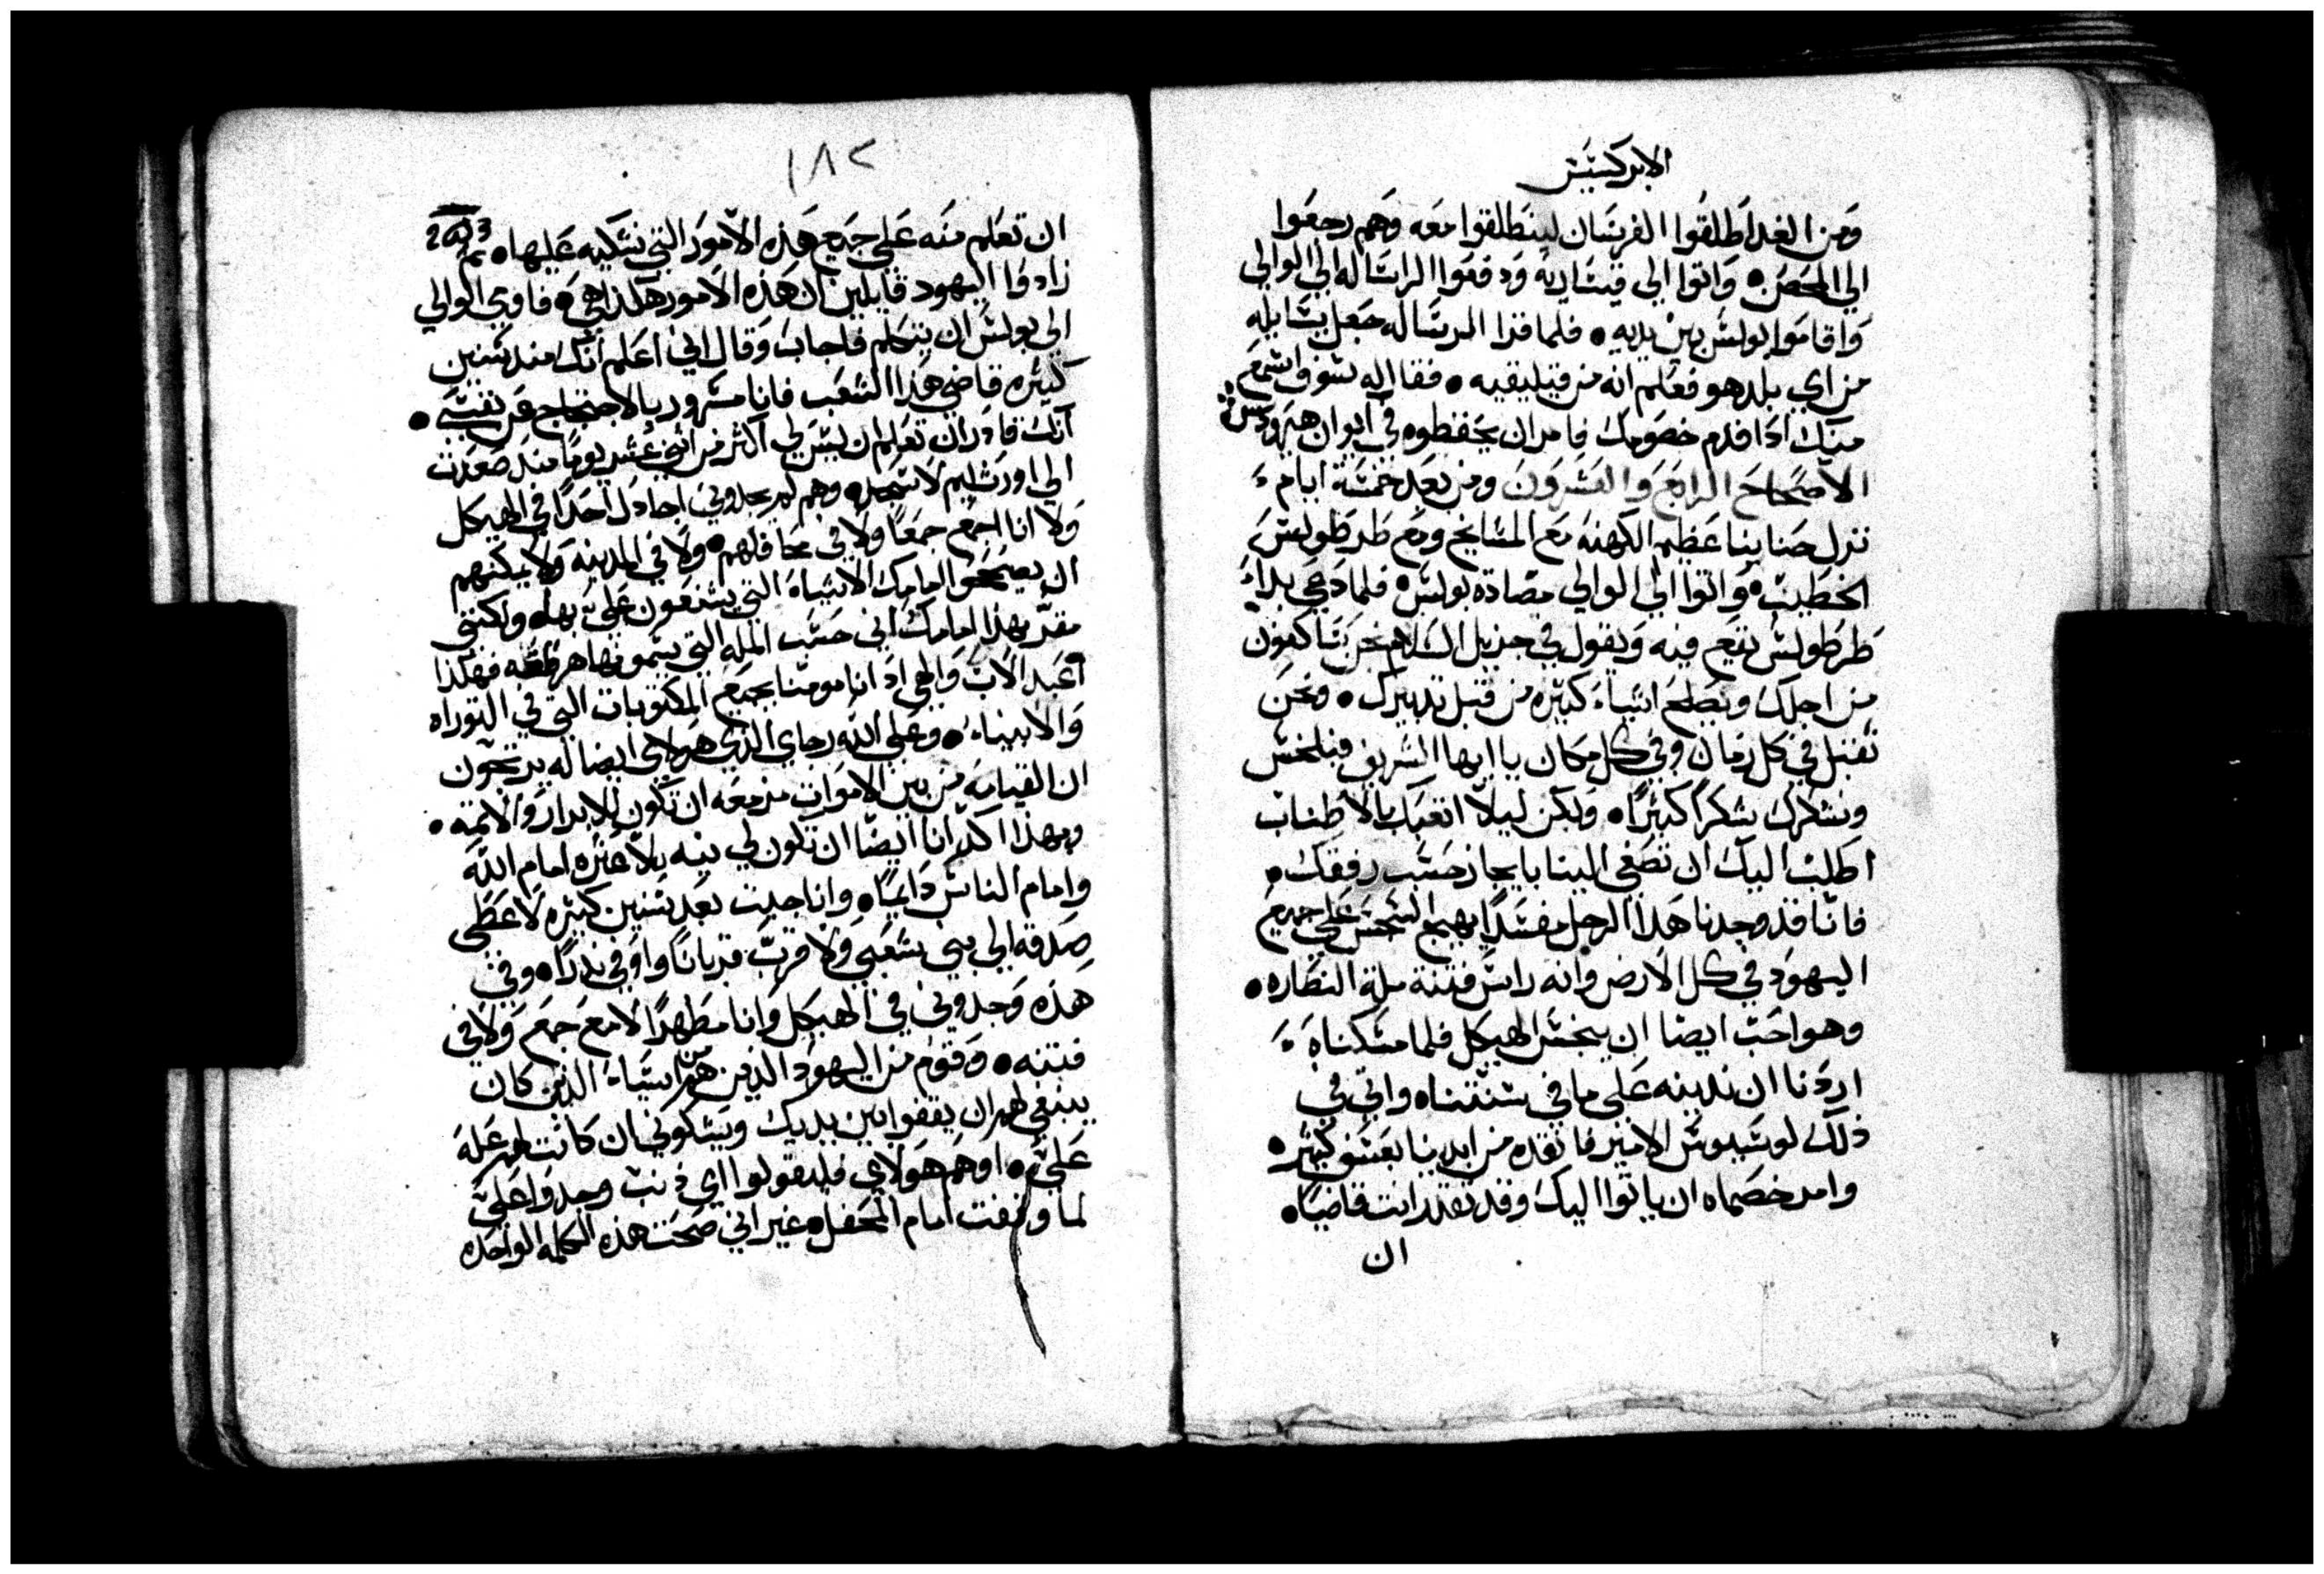 الابركسيس
ومن الغد اطلقوا الفرسان لينطلقوا معه وهم رجعوا
الي المحصن• واتوا الي قيساريه ودفعوا الرساله الي الوالي
واقاموا بولس بين يديه• فلما قرا الرساله جعل يسايله
من اي بلد هو فعلم انه من قيليقيه• فقال له سوف اسمع
منك اذا قدم خصومك فامر ان يحفظوه في ايوان هيرودس
الاصحاح الرابع والعشرون ومن بعد خمسة ايام
نزل حنانيا عظيم الكهنه مع المشايخ ومع طرطولس
الخطيب• واتوا الي الوالي مضادة بولس• فلما دعي بدا
طرطولس يقع فيه ويقول في جزيل السلام نحن ساكنون
من اجلك ويصلح اشياء كثيره من قبل تدبيرك• ونحن
نقبل في كل زمان وفي كل مكان يا ايها الشريف فيلخس
ونشكرك شكرا كثيرا• ولكن ليلا اتعبك بالاطناب
اطلب اليك ان تصغي الينا بايجاز حسب رفقك•
فانا قد وجدنا هذا الرجل مفسدا يهيج السجس علي جميع
اليهود في كل الارض وانه راس فتنة ملة النصاره•
وهو احب ايضا ان ينجس الهيكل فلما مسكناه
اردنا ان ندينه علي ما في سنتنا• واتي في
ذلك لوسيوس الامير فانقده من ايدينا بعسف كثير•
وامر خصماه ان ياتوا اليك وقد تقدر انت قاضيا•
ان
١٨٢
ان تعلم منه علي جميع هذه الامور التي نشكيه عليها• ثم
زادوا اليهود قايلين ان هذه الامور هكذا هي• فاومي الوالي
الي بولس ان يتكلم فاجاب وقال اني اعلم انك منذ سنين
كثيره قاضي هذا الشعب فانا مسرور بالاحتجاج عن نفسي•
انك قادر ان تعلم ان ليس لي اكثر من اثني عشر يوما منذ صعدت
الي اورشليم لاسجد• وهم لم يجدوني اجادل احدا في الهيكل
ولا انا اجمع جمعا ولا في محافلهم• ولا في المدينه ولا يمكنهم
ان يصححوا امامك الاشياء التي يشنعون علي بها• ولكنني
مقر بهذا امامك اني حسب المله التي يسمونها هرطقه فهكذا
اعبد الاب والهي اذ انا مومنا بجميع المكتوبات التي في التوراه
والانبياء• وعلي الله رجاي الذي هولاي ايضا له يرتجون
ان القيامه من بين الاموات مزمعه ان تكون للابرار والاثمه•
وبهذا اكد انا ايضا ان تكون لي نيه بلا عثره امام الله
وامام الناس دايما• وانا جيت بعد سنين كثيره لاعطي
صدقه الي بني شعبي ولا قرب قربانا واوفي نذرا• وفي
هذه وجدوني في الهيكل وانا مطهرا لا مع جمع ولا في
فتنه• وقوم من اليهود الذين هم من اسياء الذين كان
ينبغي لهم ان يقفوا بين يديك ويشكوني ان كانت لهم عله
علي• او هم هولاي فليقولوا اي ذنب وجدوا علي
لما وقفت امام المحفل• غير اني صحت هذه الكلمه الواحده